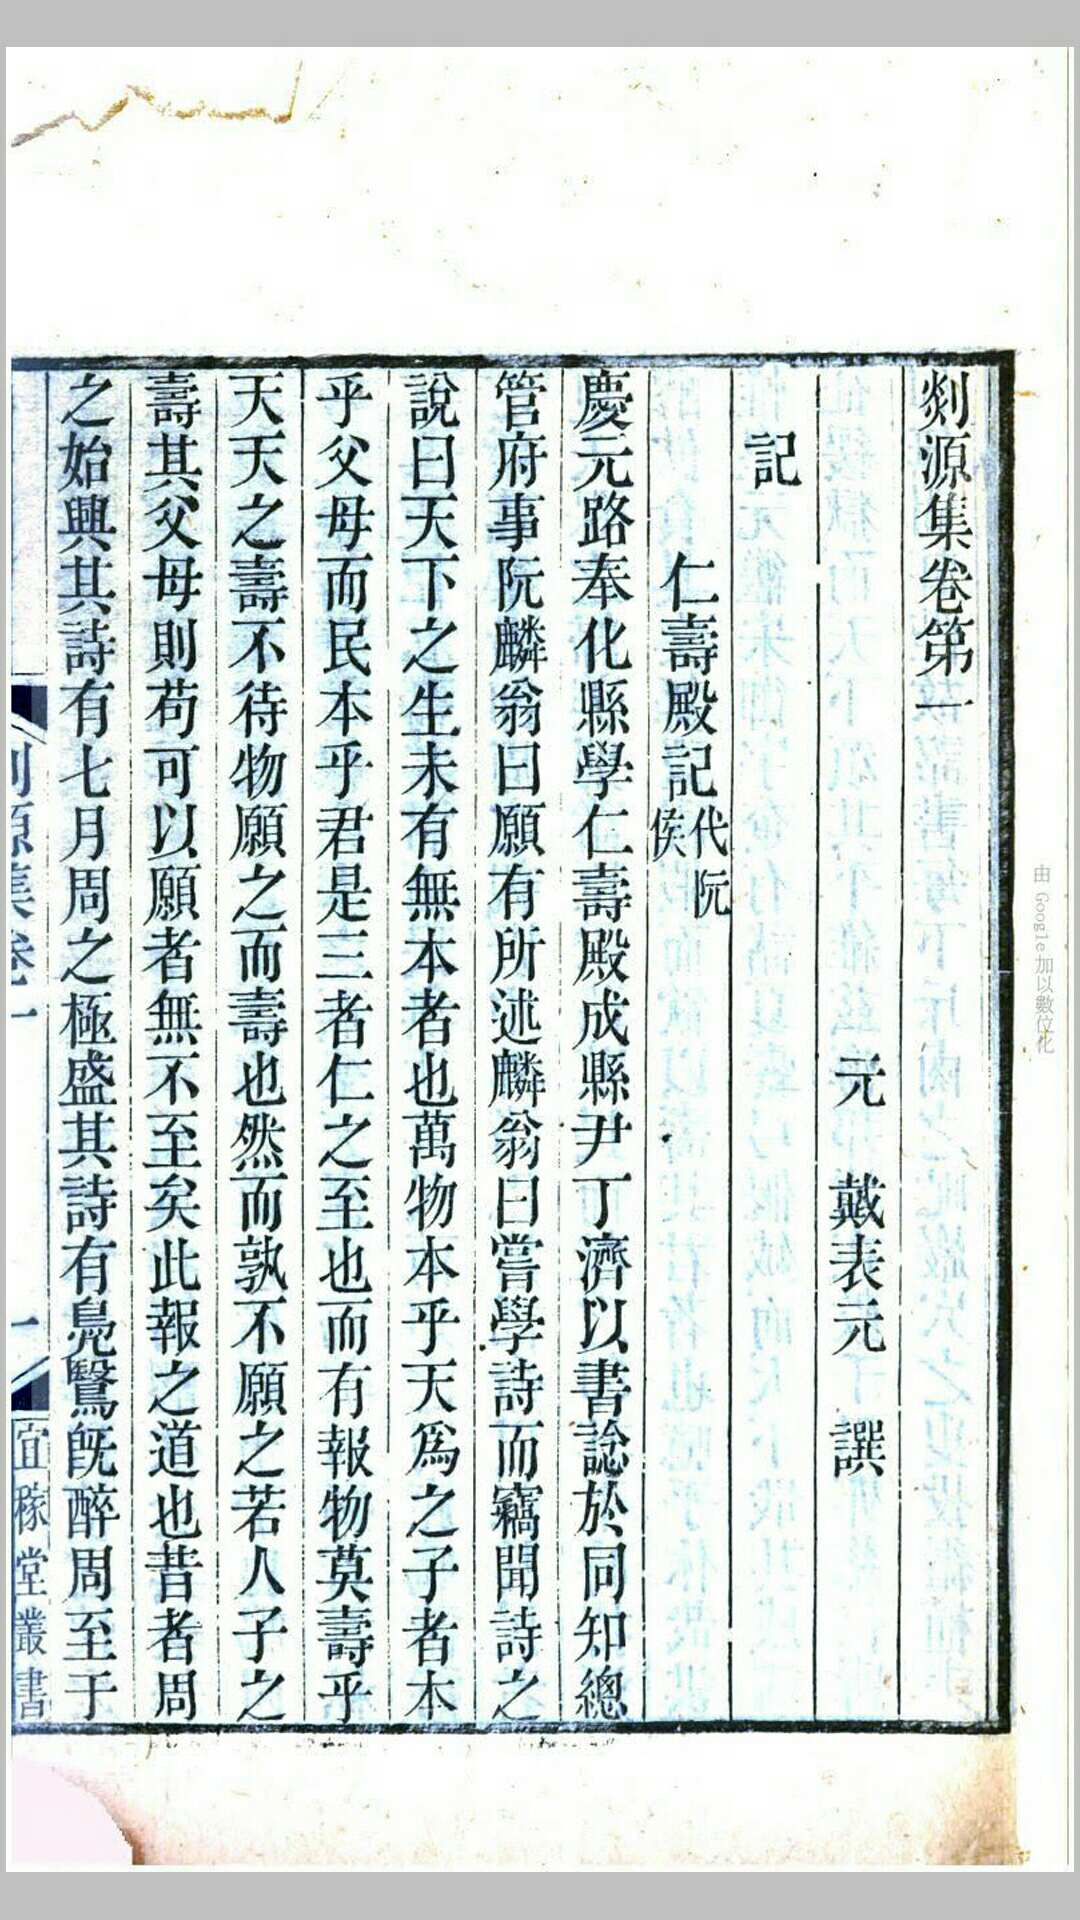 剡源集卷第一
元　戴表元　譔
記
仁壽殿記代阮侯
慶元路奉化縣學仁壽殿成縣尹丁濟以書諗於同知總
管府事阮麟翁曰願有所述麟翁曰嘗學詩而竊聞詩之
說曰天下之生未有無本者也萬物本乎天爲之子者本
乎父母而民本乎君是三者仁之至也而有報物莫壽乎
天天之壽不待物願之而壽也然而孰不願之若人子之
壽其父母則苟可以願者無不至矣此報之道也昔者周
之始興其詩有七月周之極盛其詩有鳧鷖旣醉周至于
剡源集卷一
一
宜稼堂叢書
由 Google 加以數位化